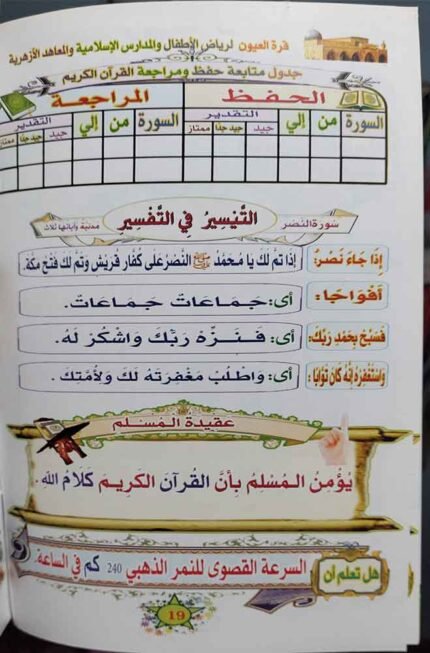 قرة العيون لرياض الأطفال والمدارس الإسلامية والمعاهد الأزهرية
جدول متابعة حفظ ومراجعة القرآن الكريم
الحفظ المراجعة
السورة من إلي التقدير السورة من إلي التقدير
جيد جيد جدا ممتاز جيد جيد جدا ممتاز
سورة النصر التَّيْسِيرُ فِي التَّفْسِيرِ مدنية وآياتها ثلاث
إِذَا جَاءَ نَصْرُ: إِذَا تَمَّ لَكَ يَا مُحَمَّدُ ﷺ النَّصْرُ عَلَى كُفَّارِ قُرَيْشٍ وَتَمَّ لَكَ فَتْحُ مَكَّةَ.
أَفْوَاجًا: أى: جَمَاعَاتٌ جَمَاعَاتٌ.
فَسَبِّحْ بِحَمْدِ رَبِّكَ: أى: فَنَزِّهْ رَبَّكَ وَاشْكُرْ لَهُ.
وَاسْتَغْفِرْهُ إِنَّهُ كَانَ تَوَّابًا: أى: وَاطْلُبْ مَغْفِرَتَهُ لَكَ وَلِأُمَّتِكَ.
عقيدة المسلم
يُؤْمِنُ الْمُسْلِمُ بِأَنَّ الْقُرْآنَ الْكَرِيمَ كَلَامُ اللهِ.
هل تعلم أن السرعة القصوى للنمر الذهبي 240 كم في الساعة.
19